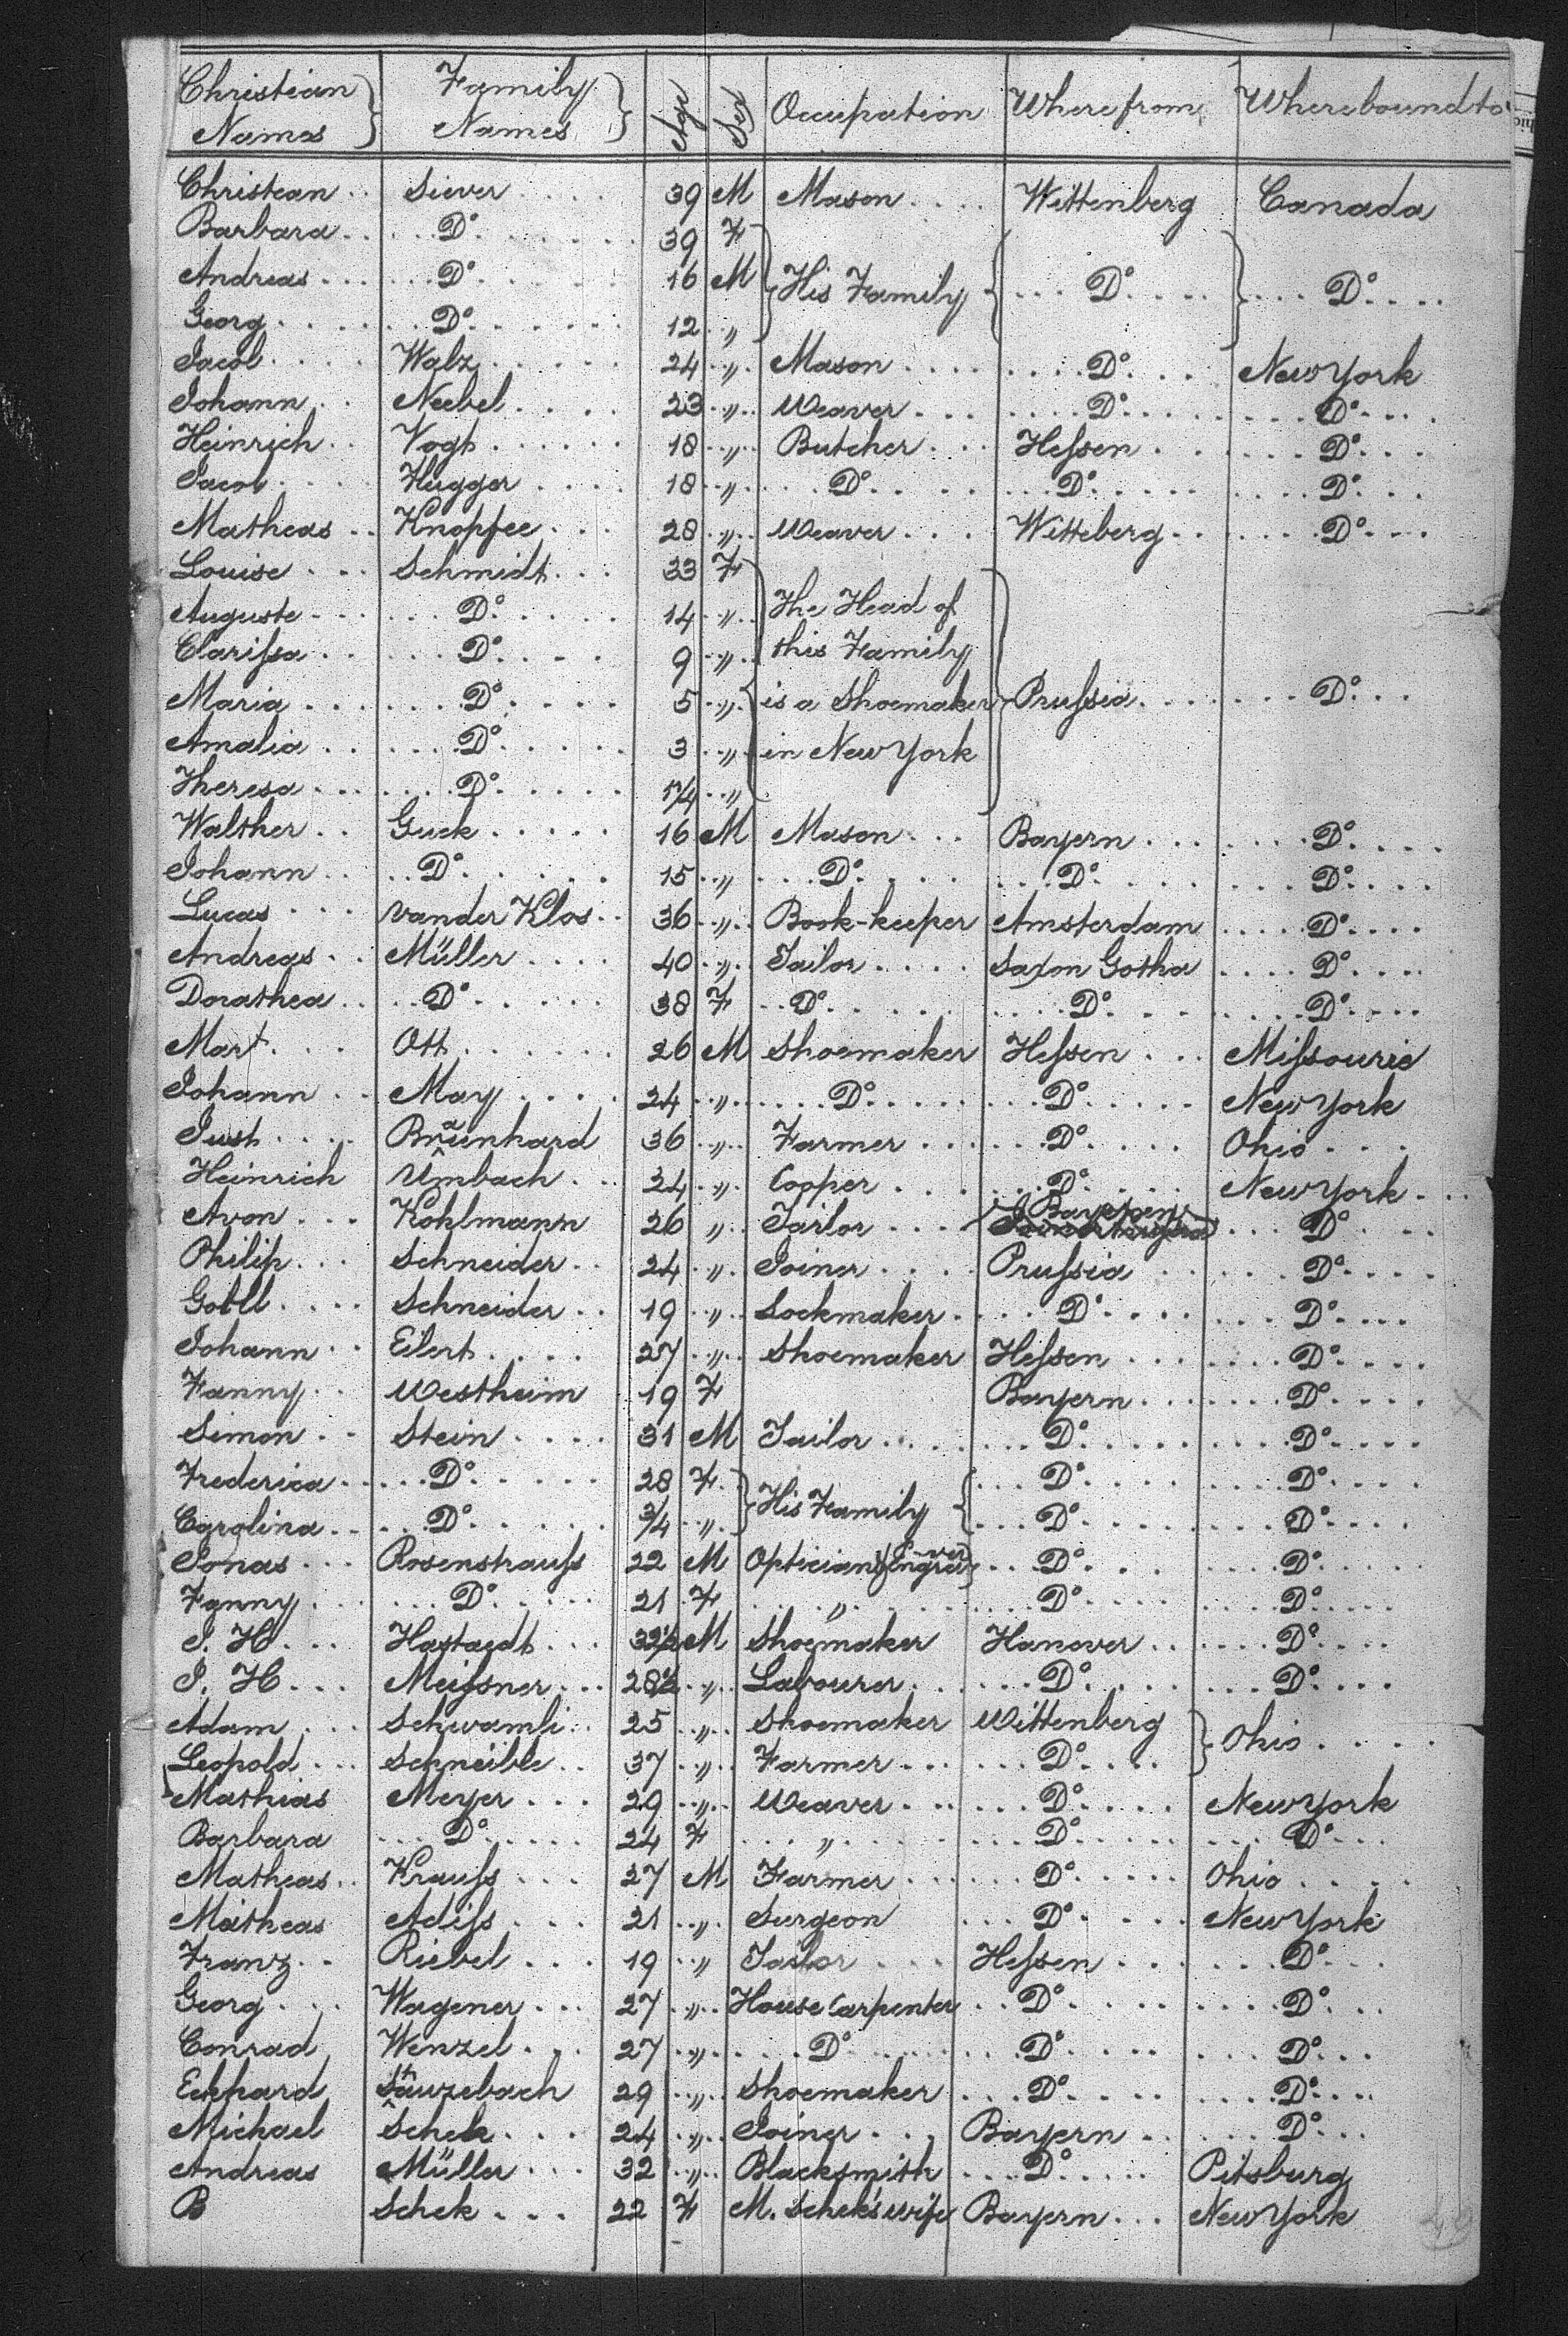 Christian Names } Family Names } Age Sex Occupation Where from Where bound to
Christean Siever 39 M Mason Wittenberg Canada
Barbara Do 39 F
Andreas Do 16 M His Family Do Do
Georg Do 12 "
Jacob Walz 24 " Mason Do New York
Johann Neebel 23 " Weaver Do Do
Heinrich Vogt 18 " Butcher Heſsen Do
Jacob Hugger 18 " Do Do Do
Matheas Knopfee 28 " Weaver Witteberg Do
Louise Schmidt 33 F
Auguste Do 14 " The Head of
Clariſsa Do 9 " this Family
Maria Do 5 " is a Shoemaker Pruſsia Do
Amalia Do 3 " in New York
Theresa Do 1/4 "
Walther Guck 16 M Mason Bayern Do
Johann Do 15 " Do Do Do
Lucas vander Klos 36 " Book-keeper Amsterdam Do
Andreas Müller 40 " Tailor Saxon Gotha Do
Dorathea Do 38 F Do Do Do
Mart Ott 26 M Shoemaker Heſsen Miſsourie
Johann May 24 " Do Do New York
Just Braunhard 36 " Farmer Do Ohio
Heinrich Umbach 24 " Cooper Do New York
Avon Kohlmann 26 " Tailor Bayern Do
Philip Schneider 24 " Joiner Pruſsia Do
Gotll Schneider 19 " Sockmaker Do Do
Johann Eilert 27 " Shoemaker Heſsen Do
Fanny Westheim 19 F Bayern Do
Simon Stein 31 M Tailor Do Do
Frederica Do 28 F His Family Do Do
Carolina Do 3/4 " Do Do
Jonas Rosenstrauſs 22 M Optician & Engraver Do Do
Fanny Do 21 F " Do Do
J. H. Hastaedt 32 1/2 M Shoemaker Hanover Do
J. H. Meiſsner 28 1/2 " Labourer Do Do
Adam Schwamli 25 " Shoemaker Wittenberg Ohio
Leopold Schneible 37 " Farmer Do
Mathias Meyer 29 " Weaver Do New York
Barbara Do 24 F " Do Do
Matheas Krauſs 27 M Farmer Do Ohio
Matheas Adiſs 21 " Surgeon Do New York
Franz Riebel 19 " Tailor Heſsen Do
Georg Wagener 27 " House Carpenter Do Do
Conrad Wenzel 27 " Do Do Do
Eckhard 29 " Shoemaker Do Do
Michael Schek 24 " Joiner Bayern Do
Andreas Müller 32 " Blacksmith Do Pitsburg
B Schek 22 F M. Schek's wife Bayern New York